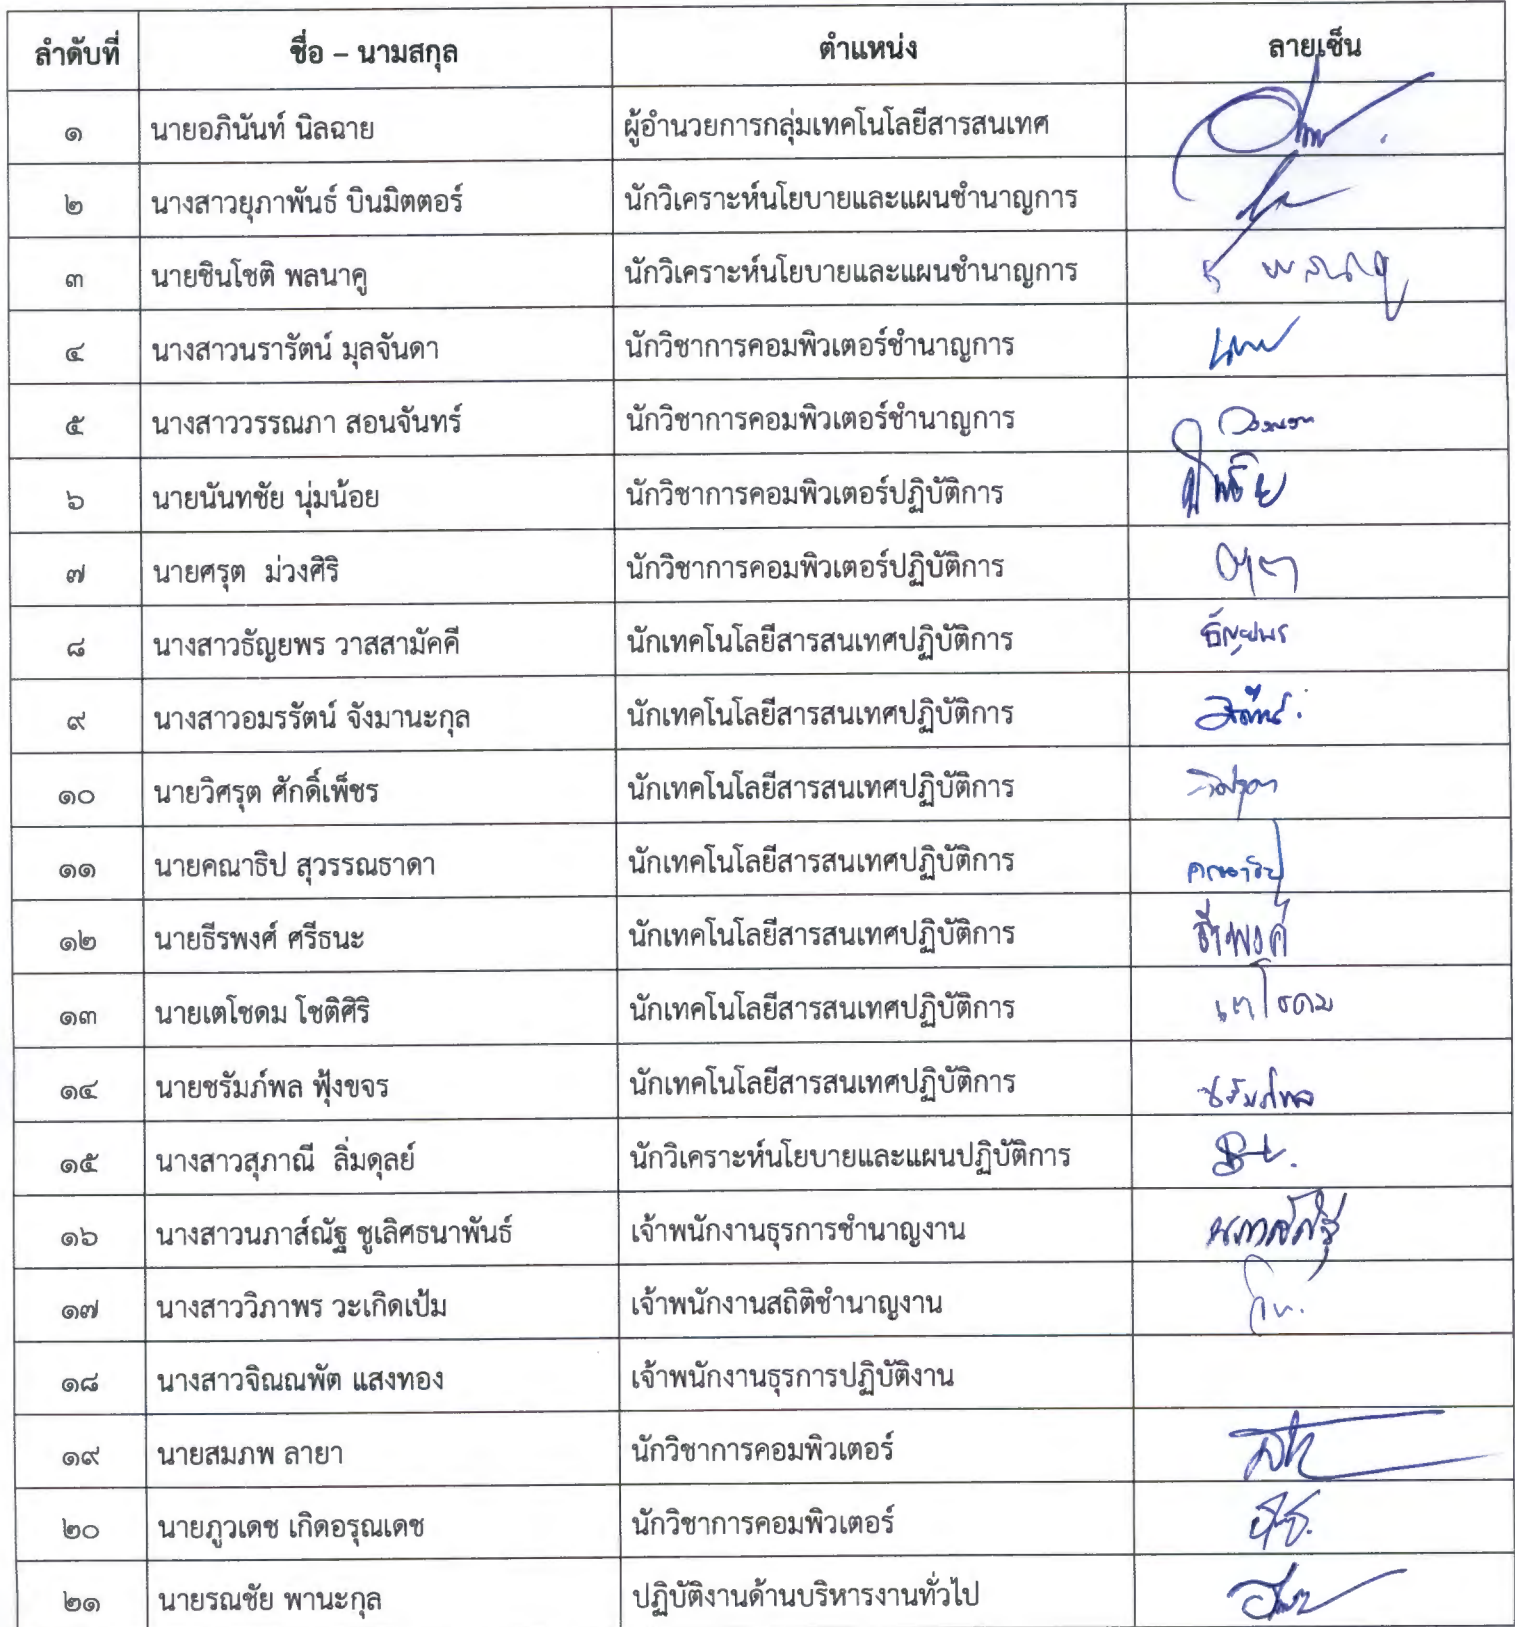 ลำดับที่ ชื่อ – นามสกุล ตำแหน่ง ลายเซ็น
๑ นายอภินันท์ นิลฉาย ผู้อำนวยการกลุ่มเทคโนโลยีสารสนเทศ
๒ นางสาวยุภาพันธ์ บินมิตตอร์ นักวิเคราะห์นโยบายและแผนชำนาญการ
๓ นายชินโชติ พลนาคู นักวิเคราะห์นโยบายและแผนชำนาญการ
๔ นางสาวนรารัตน์ มุลจันดา นักวิชาการคอมพิวเตอร์ชำนาญการ
๕ นางสาววรรณภา สอนจันทร์ นักวิชาการคอมพิวเตอร์ชำนาญการ
๖ นายนันทชัย นุ่มน้อย นักวิชาการคอมพิวเตอร์ปฏิบัติการ
๗ นายศรุต ม่วงศิริ นักวิชาการคอมพิวเตอร์ปฏิบัติการ
๘ นางสาวธัญยพร วาสสามัคคี นักเทคโนโลยีสารสนเทศปฏิบัติการ ธัญยพร
๙ นางสาวอมรรัตน์ จังมานะกุล นักเทคโนโลยีสารสนเทศปฏิบัติการ
๑๐ นายวิศรุต ศักดิ์เพ็ชร นักเทคโนโลยีสารสนเทศปฏิบัติการ วิศรุต
๑๑ นายคณาธิป สุวรรณธาดา นักเทคโนโลยีสารสนเทศปฏิบัติการ คณาธิป
๑๒ นายธีรพงศ์ ศรีธนะ นักเทคโนโลยีสารสนเทศปฏิบัติการ ธีรพงศ์
๑๓ นายเตโชดม โชติศิริ นักเทคโนโลยีสารสนเทศปฏิบัติการ เตโชดม
๑๔ นายชรัมภ์พล ฟุ้งขจร นักเทคโนโลยีสารสนเทศปฏิบัติการ ชรัมภ์พล
๑๕ นางสาวสุภาณี ลิ่มดุลย์ นักวิเคราะห์นโยบายและแผนปฏิบัติการ
๑๖ นางสาวนภาส์ณัฐ ชูเลิศธนาพันธ์ เจ้าพนักงานธุรการชำนาญงาน นภาส์ณัฐ
๑๗ นางสาววิภาพร วะเกิดเป้ม เจ้าพนักงานสถิติชำนาญงาน
๑๘ นางสาวจิณณพัต แสงทอง เจ้าพนักงานธุรการปฏิบัติงาน
๑๙ นายสมภพ ลายา นักวิชาการคอมพิวเตอร์
๒๐ นายภูวเดช เกิดอรุณเดช นักวิชาการคอมพิวเตอร์
๒๑ นายรณชัย พานะกุล ปฏิบัติงานด้านบริหารงานทั่วไป